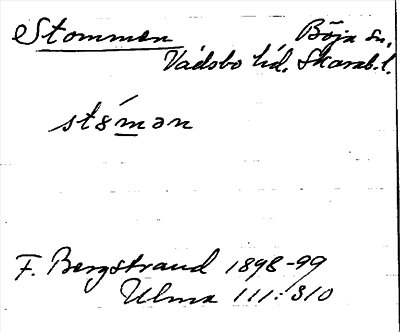 Stommen Böja sn.
Vadsbo hd. Skarab. l.
stómən
F. Bergstrand 1898-99
Ulma 111:310